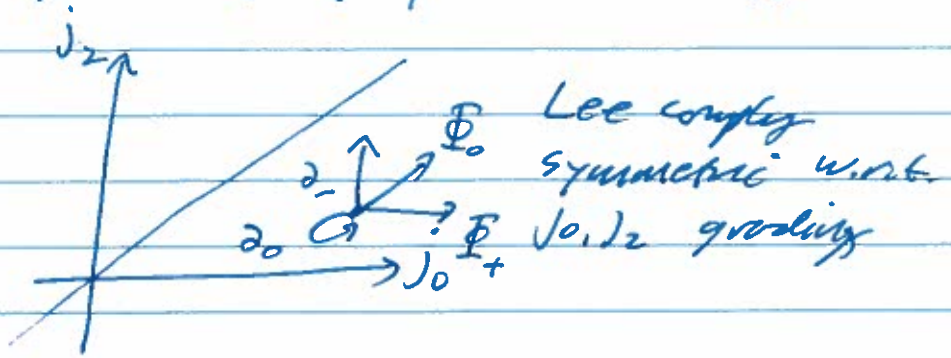 j₂
Φ₀ Lee complex
∂₋ symmetric w.r.t.
∂₀ Φ₊ j₀, j₂ gradings
j₀